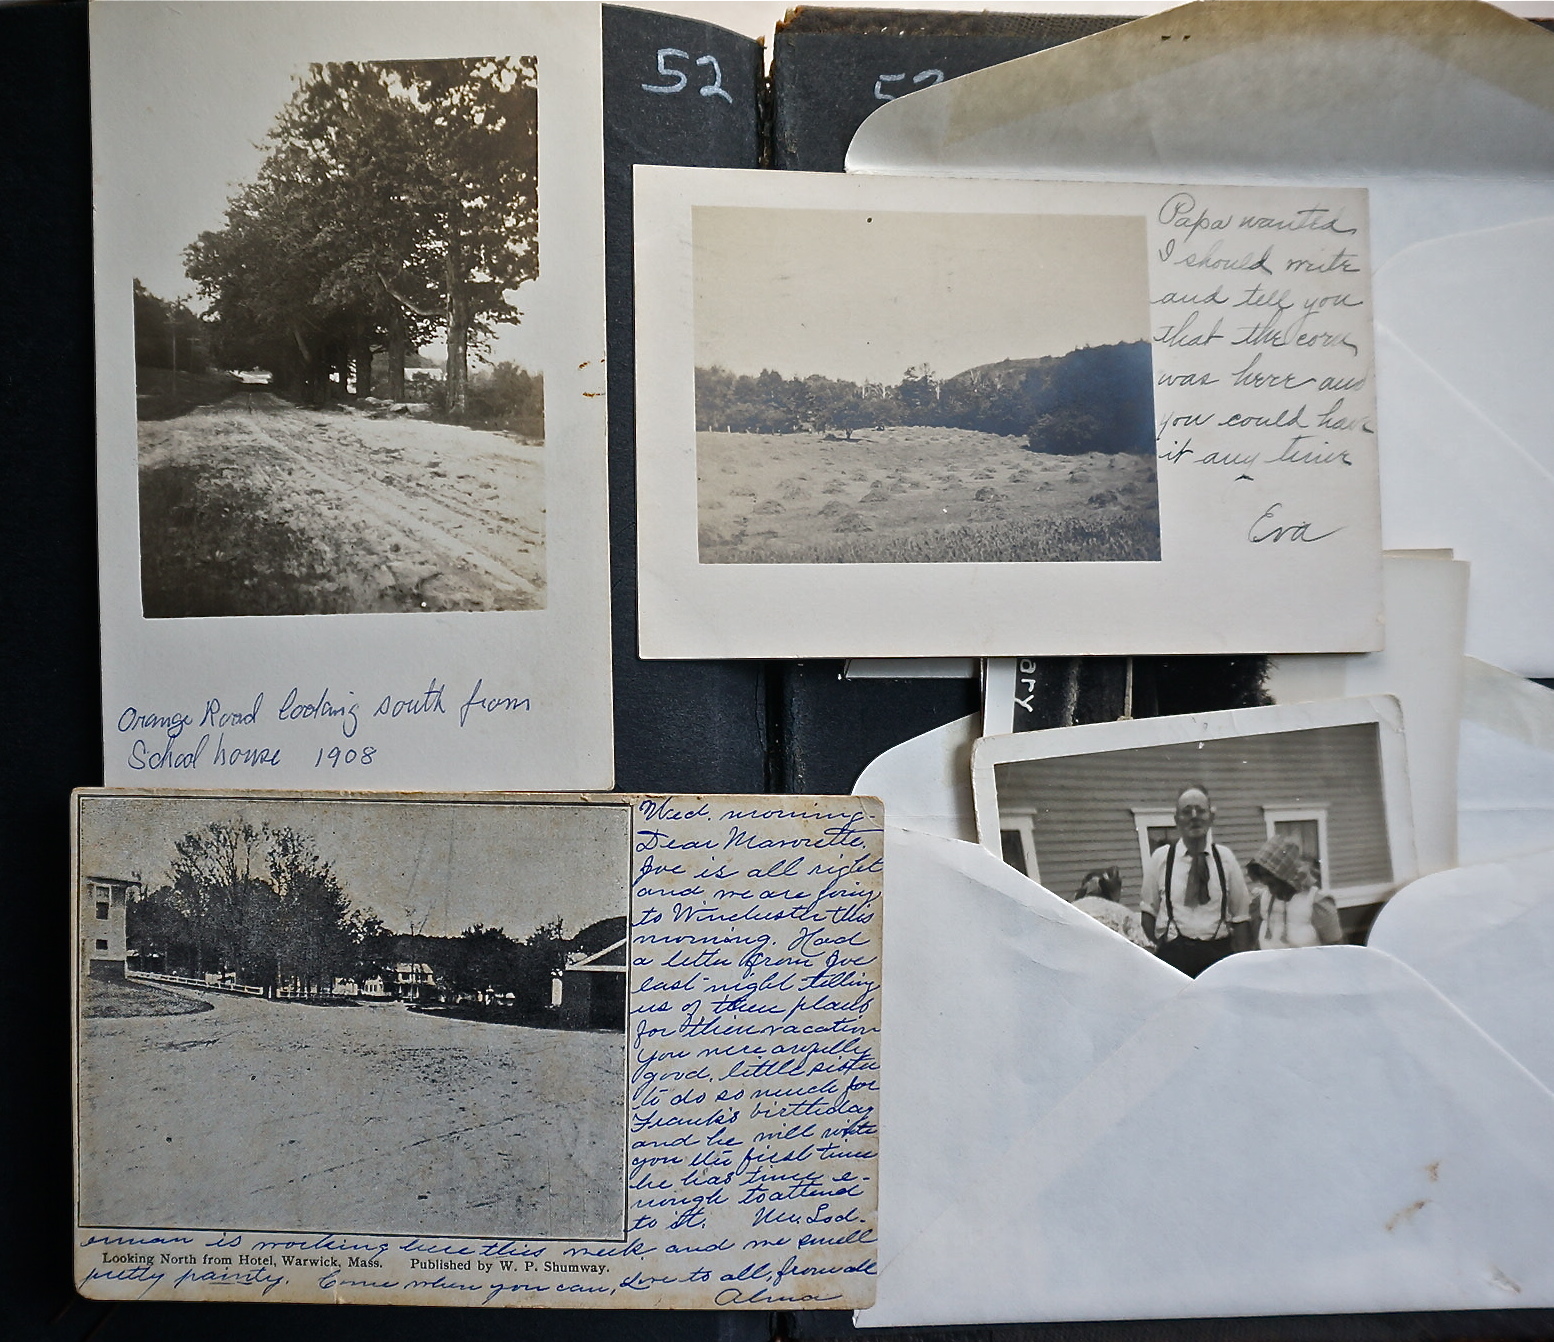 52
52
Orange Road looking south from
School house 1908
Papa wanted
I should write
and tell you
that the corn
was here and
you could have
it any time
Eva
ary
Wed. morning.
Dear Marriette,
Joe is all right
and we are going
to Winchester this
morning. Had
a letter from Joe
last night telling
us of their plans
for their vacation
You were awfully
good, little sister
to do so much for
Frank's birthday
and he will write
you the first time
he has time e-
nough to attend
to it. Mr. Lod-
erman is working here this week and we smell
Looking North from Hotel, Warwick, Mass. Published by W. P. Shumway.
pretty painty. Come when you can, Love to all, from all
Alma